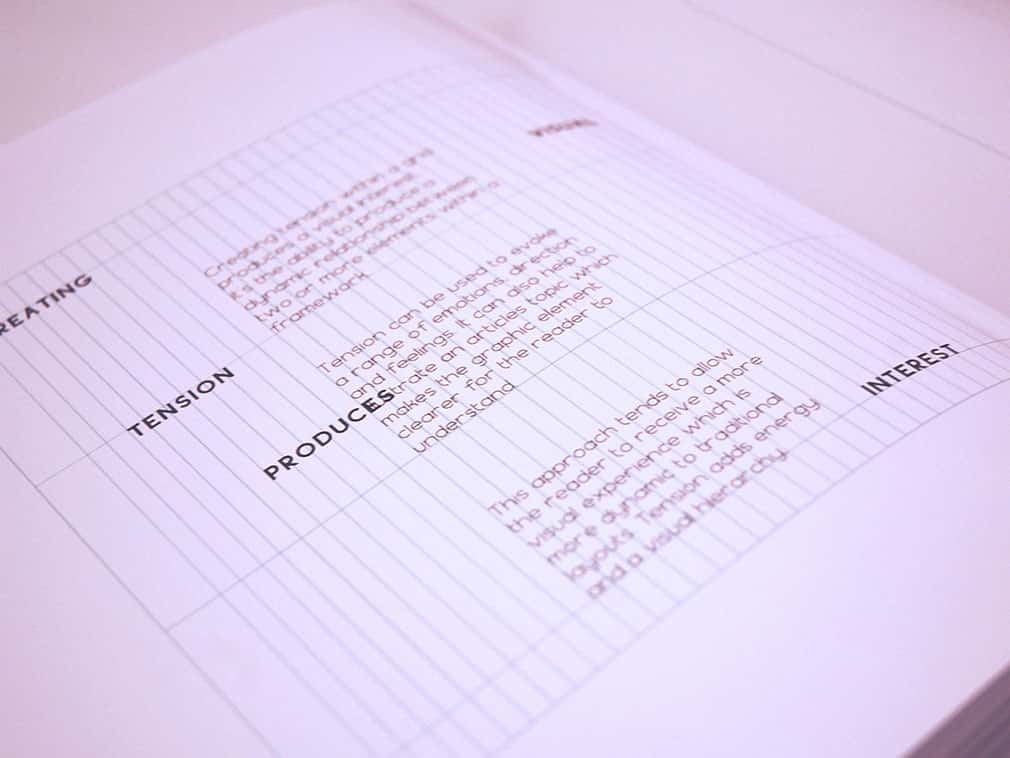 VISUAL
Creating tension within a grid
produces a visual interest
it's the ability to produce a
dynamic relationship between
two or more elements within a
framework
REATING
Tension can be used to evoke
a range of emotions, direction
and feelings. It can also help to
trate an articles topic which
makes the graphic element
clearer for the reader to
understand
TENSION
PRODUCES
This approach tends to allow
the reader to receive a more
visual experience which is
more dynamic to traditional
layouts Tension adds energy
and a visual hierarchy.
INTEREST